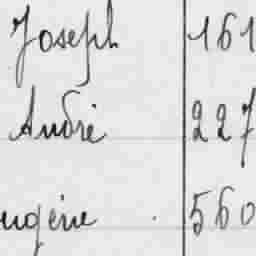 Joseph 161
André 227
ugène . 560